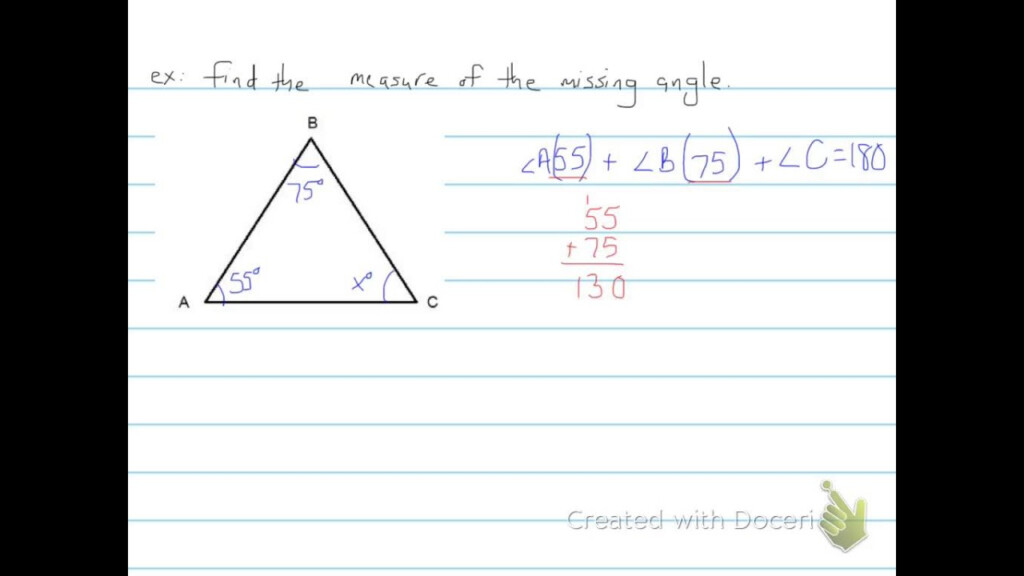 ex: find the measure of the missing angle.
B
∠A(55) + ∠B(75) + ∠C=180
75°
1
55
+ 75
130
55°
x°
A
C
Created with Doceri